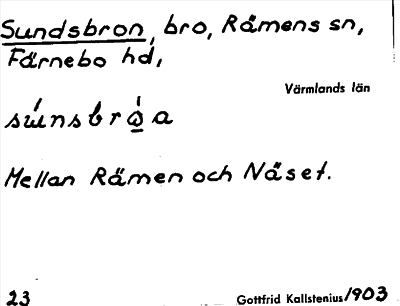 Sundsbron, bro, Rämens sn,
Färnebo hd,
Värmlands län
Mellan Rämen och Näset.
23
Gottfrid Kallstenius 1903